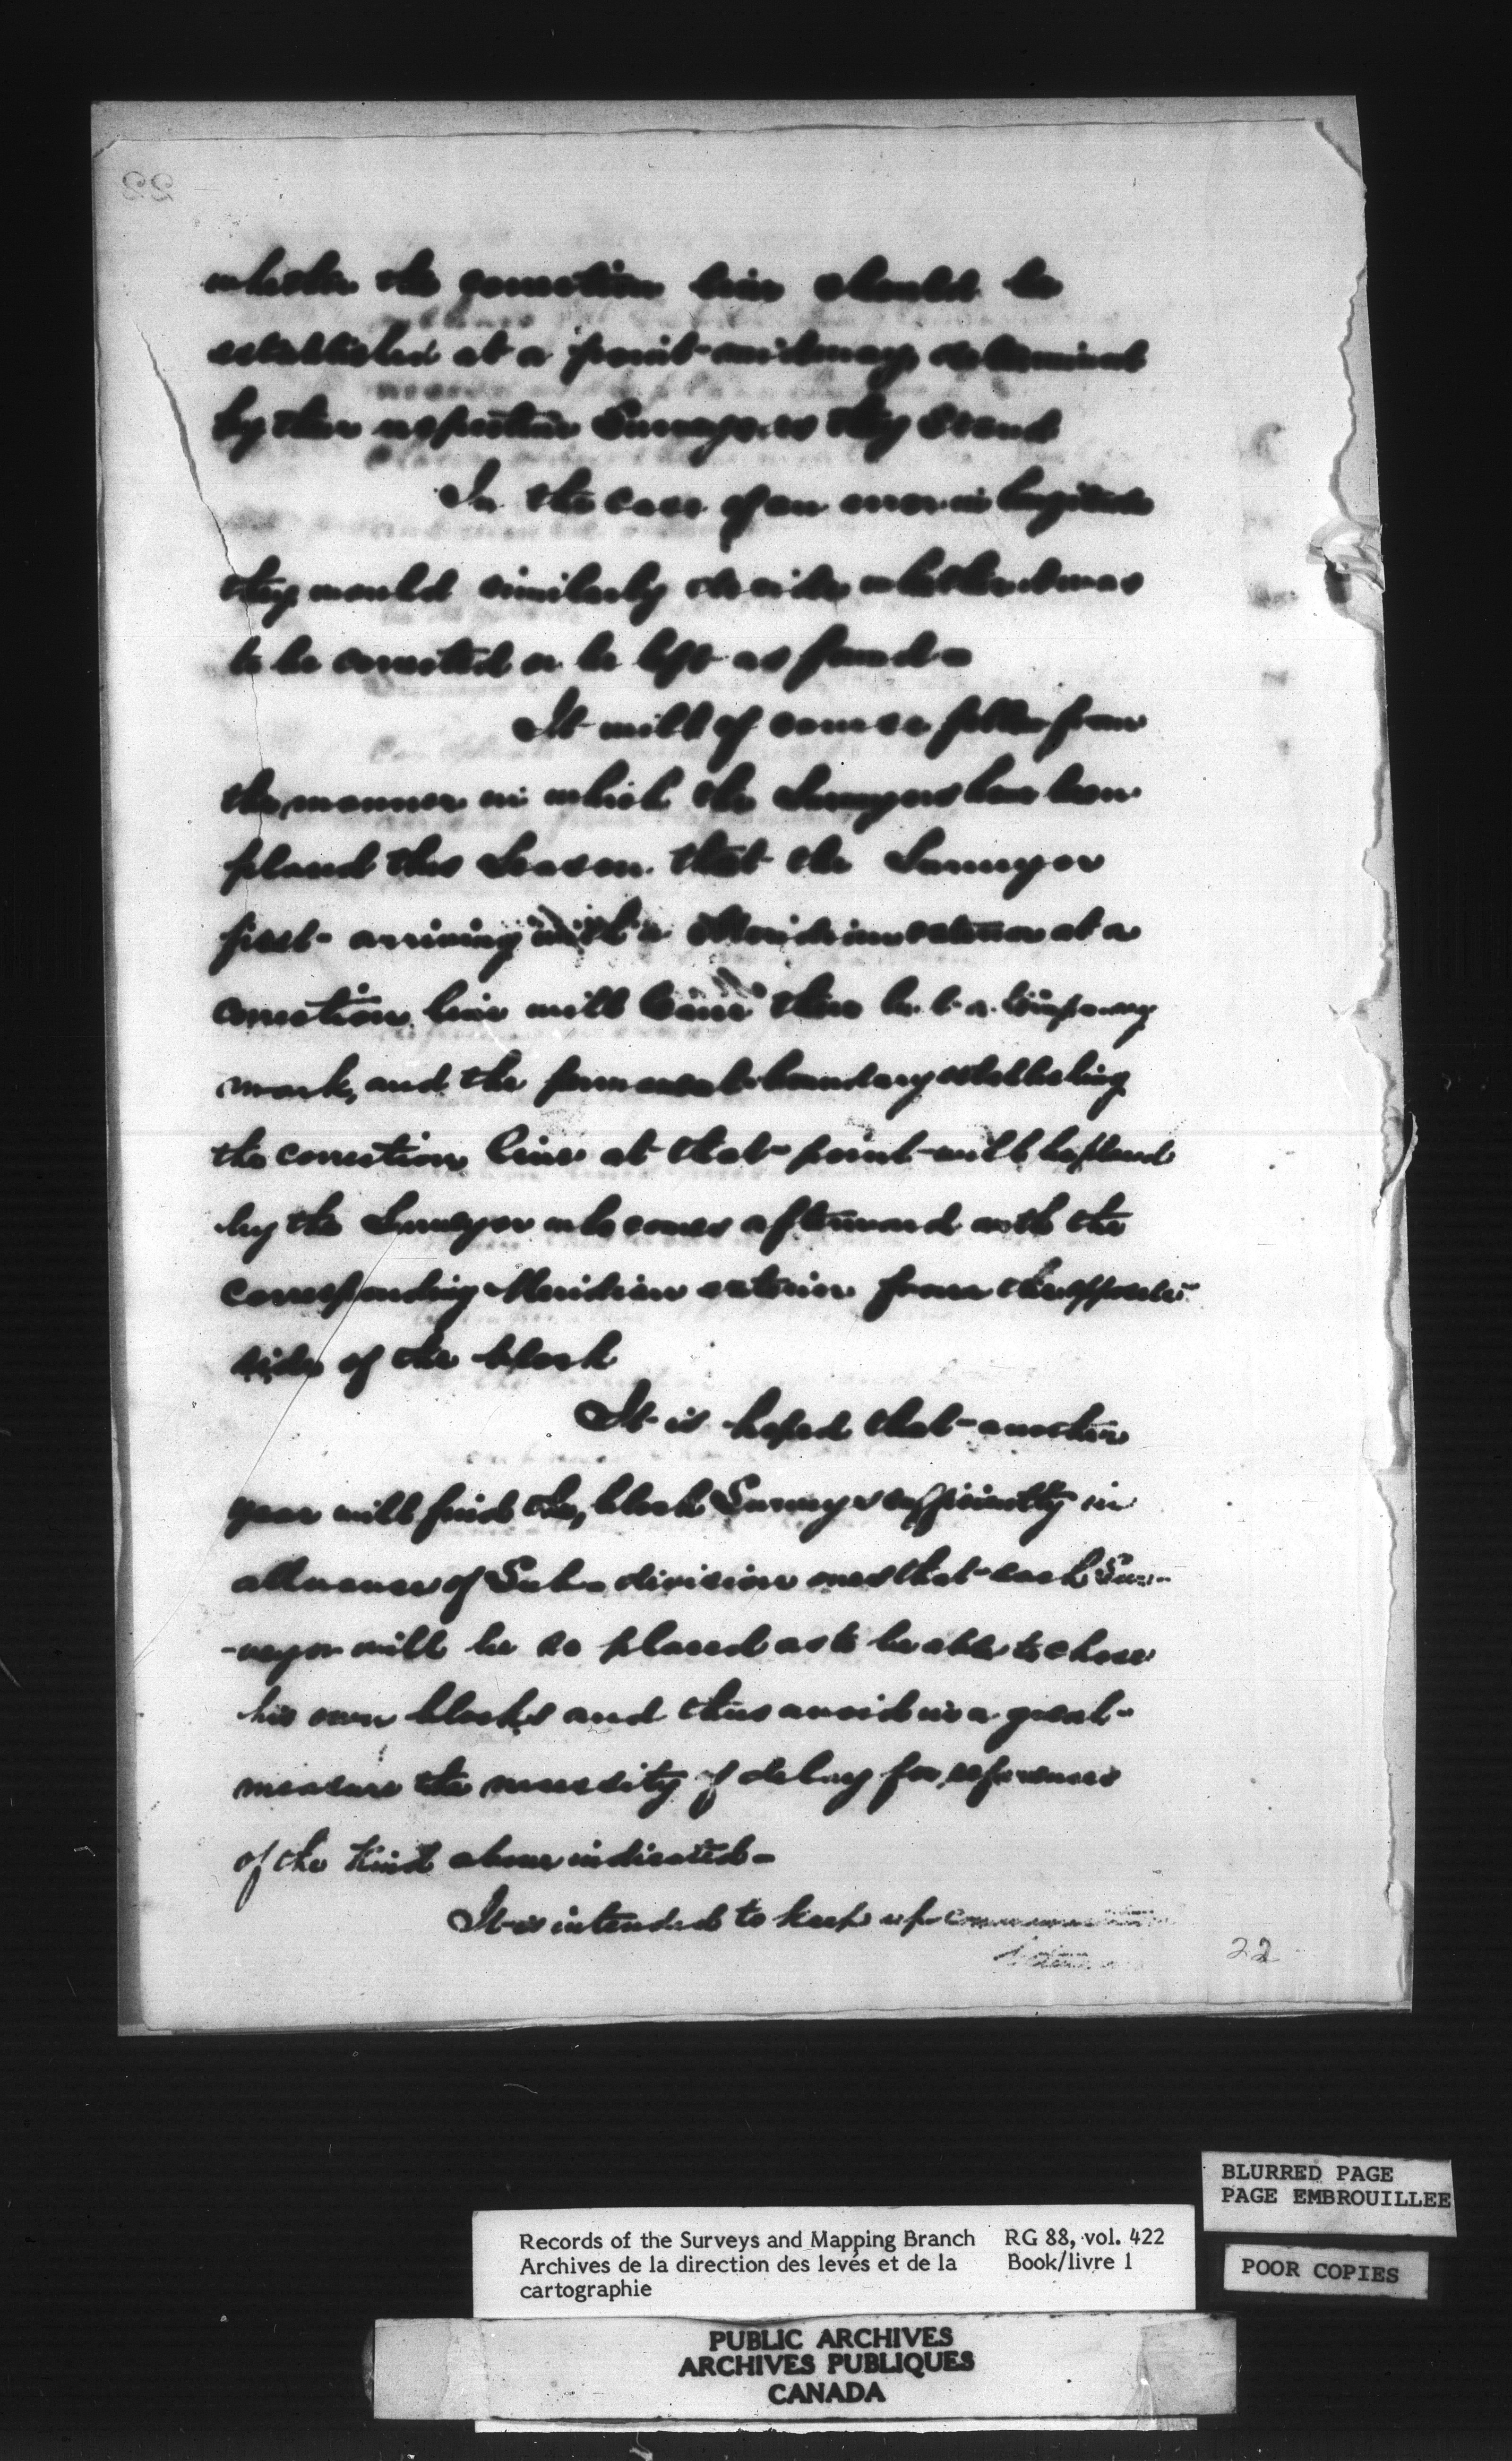 whether the correction line should be
established at a point midway determined
by their respective Surveys as they Stand
In the case of an error in longitude
they would similarly decide whether it was
to be corrected or be left as found -
It will of course follow from
the manner in which the Surveyors have been
placed this Season that the Surveyor
first arriving with a Meridian exterior at a
correction line will leave there but a temporary
mark, and the permanent boundary establishing
the correction line at that point will be placed
by the Surveyor who comes afterward with the
corresponding Meridian exterior from the opposite
side of the block
It is hoped that another
year will find the block Surveys sufficiently in
advance of Sub-division ones that each Sur-
-veyor will be so placed as to be able to close
his own blocks and thus avoid in a great
measure the necessity of delay for references
of the Kind above indicated -
It is intended to keep up communication
22
BLURRED PAGE
PAGE EMBROUILLEE
Records of the Surveys and Mapping Branch RG 88, vol. 422
Archives de la direction des levés et de la Book/livre 1
cartographie
POOR COPIES
PUBLIC ARCHIVES
ARCHIVES PUBLIQUES
CANADA